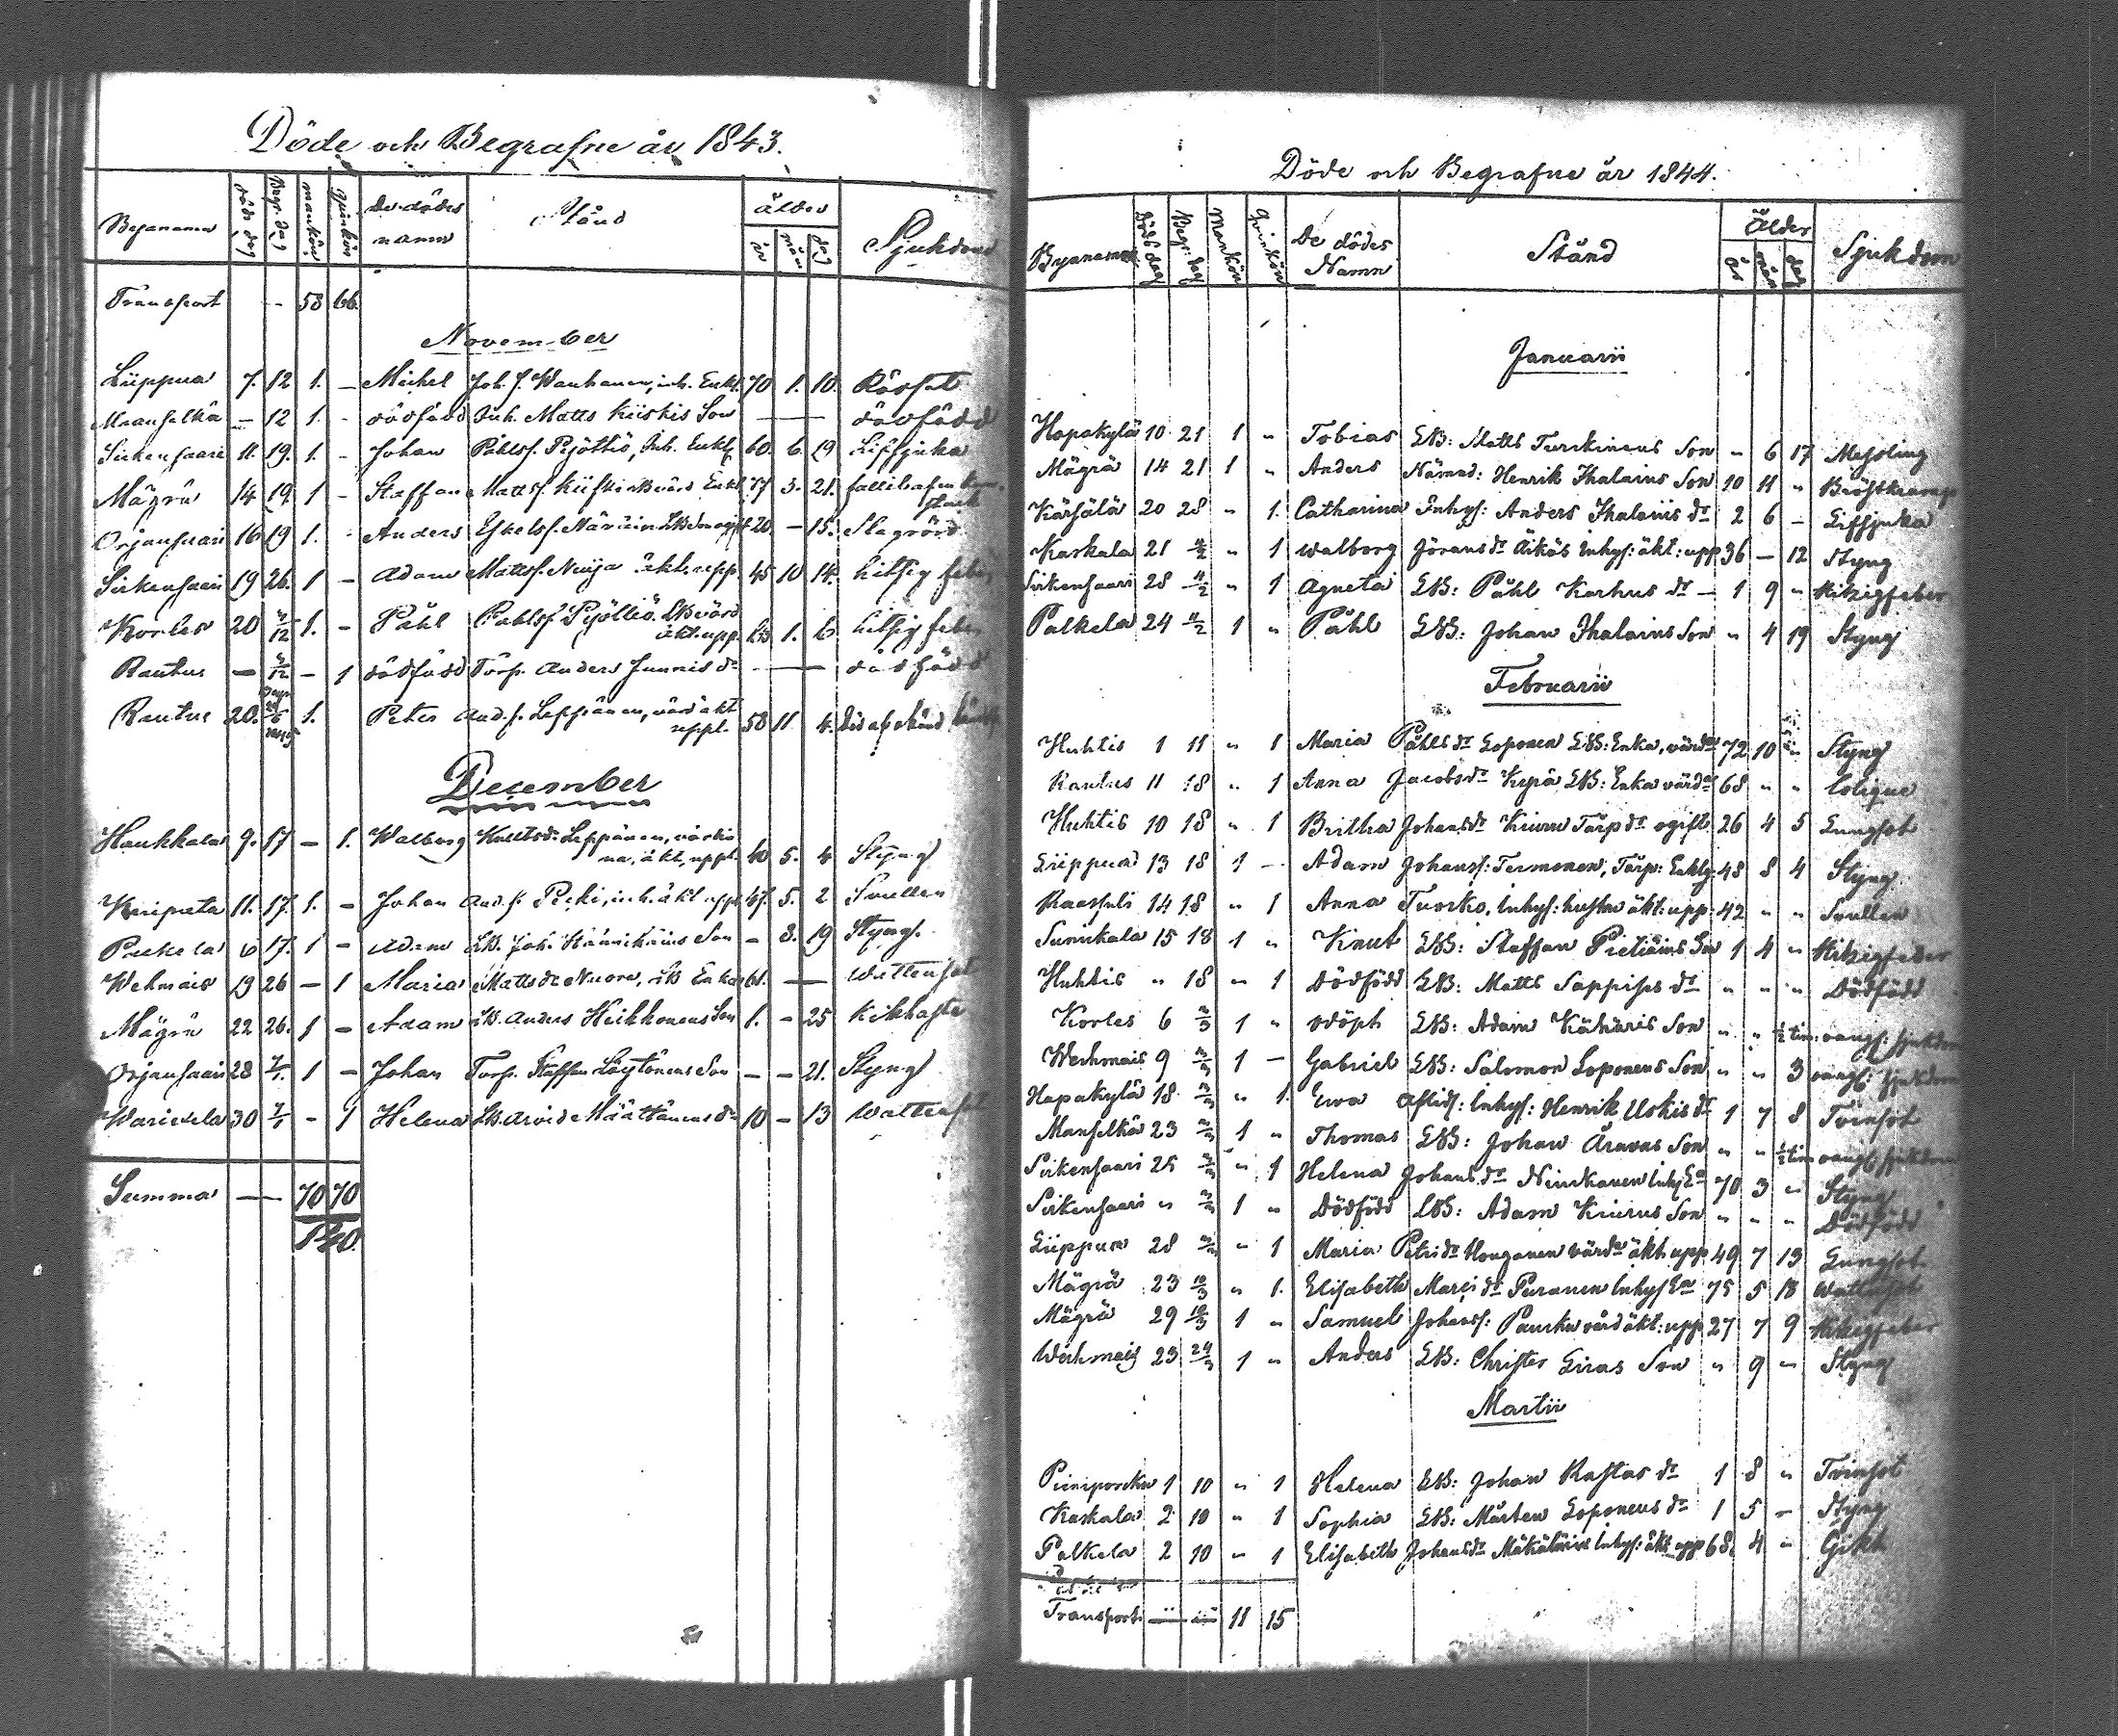 Döde och Begrafne år 1843.
Byanamn döds dag Begr. dag mankön qvinkön De dödes namn Stånd ålder år mån dag Sjukdom
Transport - 58 66.
November
Liippua 7. 12 1. - Michel Joh. s. Wanhanen, inh. Enkl. 70 1. 10. Rödsot
Maanselkä - 12 1. - dödfödd Inh. Matts Kiiskis Son — dödfödd
Sirkensaari 11. 19. 1. - Johan Påhlss. Pyöttiö, Inh. Enkl. 60. 6. 19
Mägrä 14 19. 1 - Staffan Mattss. 3. 21.
Orjansaari 16 19 1. - Anders Eskelss. 20. - 15.
Sirkensaari 19 26. 1 - Adam Mattss. äkt. upp. 45 10 14. hitsig feber
Korles 20 3/12 1. - Påhl Påhlss. Pyöttiö LB värd
äkt. upp. 1. 6. hitsig feber
Rautus — 3/12 - 1 dödfödd Torp. Anders Junnis dr — dödfödd
Rautus 20. 1. Peter And. s. Leppänen, värd äkt
uppl. 58 11 4.
December
Haukkala 9. 17 - 1. Walborg Knutsdr Leppänen, värdin
na, äkt. uppl. 5. 4 Styng
Kuipula 11. 17. 1. - Johan And. s. Pecki, inh. äkt uppl. 67. 5. 2 Svullen
Palkela 6 17. 1 - Adam LB. Joh. Son - 8. 19 Styng.
Wehmais 19 26 - 1 Maria Mattsdr Nuora, LB Enka 61. — wattensot
Mägrä 22 26. 1 - Adam LB. Anders Heikkonens Son 1. - 25 Kikhosta
Orjansaari 28 7/1. 1 - Johan Torp. Staffan Löytönens Son - - 21. Styng
Warixela 30 7/1 - 1 Helena LB. Arvid Määttänens dr 10 - 13 wattensot
Summa — 70 70
140.
Döde och Begrafne år 1844.
Byanamn Döds dag Begr. dag Mankön Qvinkön De dödes Namn Stånd Ålder år mån dag Sjukdom
Januarii
Hapakylä 10 21 1 " Tobias LB: Matts Turkinens Son " 6 17 Messling
Mägrä 14 21 1 " Anders Nämnd: Henrik Ihalains Son 10 11 " Bröstkramp
Kärsälä 20 28 " 1. Catharina Inhys: Anders Ihalainis dr 2 6 -
Kaskala 21 4/2 " 1 Walborg Jöransdr Äikäs Inhys: äkt: upp 36 - 12 Styng
Sirkensaari 28 4/2 " 1 Agneta LB: Påhl Karhus dr - 1 9 " Hitzigfeber
Palkela 24 4/2 1 " Påhl LB: Johan Ihalains Son " 4 19 Styng
Februarii
Huhtis 1 11 " 1 Maria Påhlsdr Loponen LB: Enka, värdna 72 10 " Styng
Rautus 11 18 " 1 Anna Jacobsdr Kepä LB: Enka värdna 68 " " Colique
Huhtis 10 18 " 1 Britha Johansdr Kiuru Torp dr ogift 26 4 5 Lungsot
Liippua 13 18 1 - Adam Johanss: Termonen, Torp: Enkl 48 8 4 Styng
Raasuli 14 18 " 1 Anna Tuorko, Inhys: hustru äkt: upp: 42 " " Svullen
Sunikala 15 18 1 " Knut LB: Staffan Pietiäins Son 1 4 " Hitzigfeber
Huhtis " 18 " 1 Dödfödd LB: Matts Sappises dr " " " Dödfödd
Korles 6 3/3 1 " odöpt LB: Adam Käkäris Son " " ½ tim:
Wehmais 9 3/3 1 - Gabriel LB: Salomon Loponens Son " " 3
Hapakylä 18 3/3 " 1. Ewa Aflids: Inhys: Henrik Uskis dr 1 7 8 Tvinsot
Manselkä 23 3/3 1 " Thomas LB: Johan Äravas Son " " ½ tim
Sirkensaari 25 3/3 " 1 Helena Johansdr Ninikanen Inhys Ea 70 3 " Styng
Sirkensaari " 3/3 1 " Dödfödd LB: Adam Kiurus Son " " " Dödfödd
Liippua 28 3/3 " 1 Maria Petridr Honganen värdna äkt: upp 49 7 13 Lungsot
Mägrä 23 10/3 " 1. Elisabeth Marcidr Puranen Inhys Ea 75 5 18 Wattusot
Mägrä 29 10/3 1 " Samuel Johanss: Paukku värd äkt: upp 27 7 9 Hitzigfeber
Wehmais 23 24/3 1 " Anders LB: Christer Liras Son " 9 " Styng
Martii
Pieniporkku 1 10 " 1 Helena LB: Johan Rastas dr 1 8 " Tvinsot
Kaskala 2 10 " 1 Sophia LB: Mårten Loponens dr 1 5 - Styng
Palkela 2 10 " 1 Elisabeth Johansdr Mäkäläin Inhys: äkt upp 68. 4 " Gikt
Transport 11 15